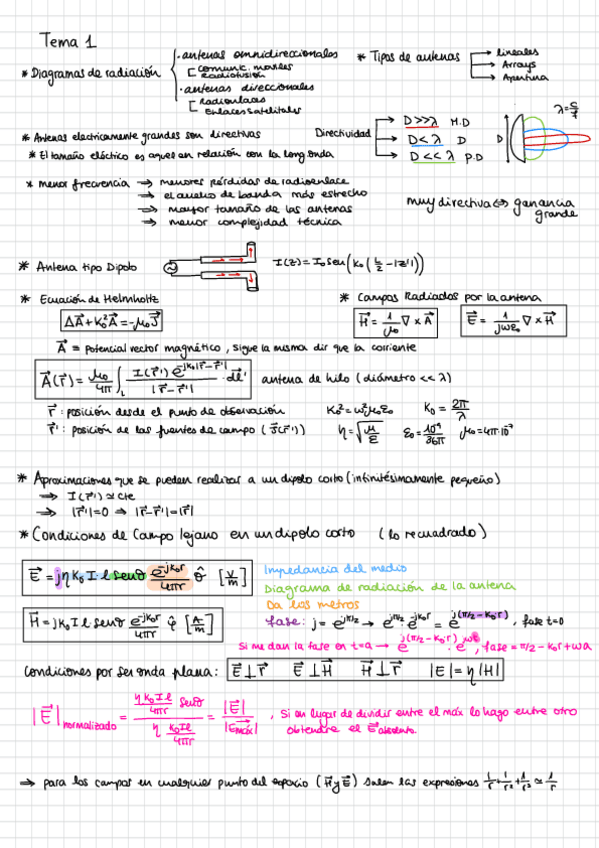 Tema 1
* Diagramas de radiación
· antenas omnidireccionales
comunic. moviles
radiofusión
· antenas direccionales
Radioenlaces
Enlaces Satelitales
* Tipos de antenas
→ lineales
→ Arrays
→ Apertura
* Antenas electricamente grandes son directivas
* El tamaño eléctico es aquel en relación con la long onda
Directividad
→ D>>>λ M.D
→ D<λ D
→ D<<λ P.D
D
λ=c/f
* menor frecuencia → menores pérdidas de radioenlace
→ el ancho de banda más estrecho
→ mayor tamaño de las antenas
→ menor complejidad técnica
muy directiva ⇔ ganancia grande
* Antena tipo Dipolo
I(z) = I₀ sen(k₀(L/2 - |z'|))
* Ecuación de Helmholtz
ΔA⃗ + k₀²A⃗ = -μ₀J⃗
* Campos Radiados por la antena
H⃗ = 1/μ₀ ∇ × A⃗
E⃗ = 1/jωε₀ ∇ × H⃗
A⃗ = potencial vector magnético, sigue la misma dir que la corriente
A⃗(r⃗) = μ₀/4π ∫_L I(r⃗') e^(-jk₀|r⃗-r⃗'|)/|r⃗-r⃗'| · dl⃗' antena de hilo (diámetro << λ)
r⃗ : posición desde el punto de observación
r⃗' : posición de las fuentes de campo (J⃗(r⃗'))
k₀² = ω²μ₀ε₀ k₀ = 2π/λ
η = √(μ/ε) ε₀ = 10⁻⁹/36π μ₀ = 4π·10⁻⁷
* Aproximaciones que se pueden realizar a un dipolo corto (infinitésimamente pequeño)
→ I(r⃗') ≃ cte
→ |r⃗'| = 0 ⇒ |r⃗-r⃗'| = |r⃗|
* Condiciones de Campo lejano en un dipolo corto (lo recuadrado)
E⃗ = jη k₀ I·l senθ e^(-jk₀r)/4πr θ̂ [V/m]
Impedancia del medio
Diagrama de radiación de la antena
Da los metros
H⃗ = jk₀ I·l senθ e^(-jk₀r)/4πr φ̂ [A/m]
fase: j = e^(jπ/2) → e^(jπ/2) · e^(-jk₀r) = e^(j(π/2 - k₀r)), fase t=0
Si me dan la fase en t=a → e^(j(π/2 - k₀r)) · e^(jωt), fase = π/2 - k₀r + ωa
Condiciones por ser onda plana: E⃗⊥r⃗ E⃗⊥H⃗ H⃗⊥r⃗ |E| = η|H|
|E⃗|normalizado = (ηk₀Il/4πr senθ)/(η k₀Il/4πr) = |E⃗|/|E⃗máx| , Si en lugar de dividir entre el máx lo hago entre otro
obtendré el E⃗absoluto
⇒ para los campos en cualquier punto del espacio (H⃗ y E⃗) salen las expresiones 1/r + 1/r² + 1/r³ ≃ 1/r